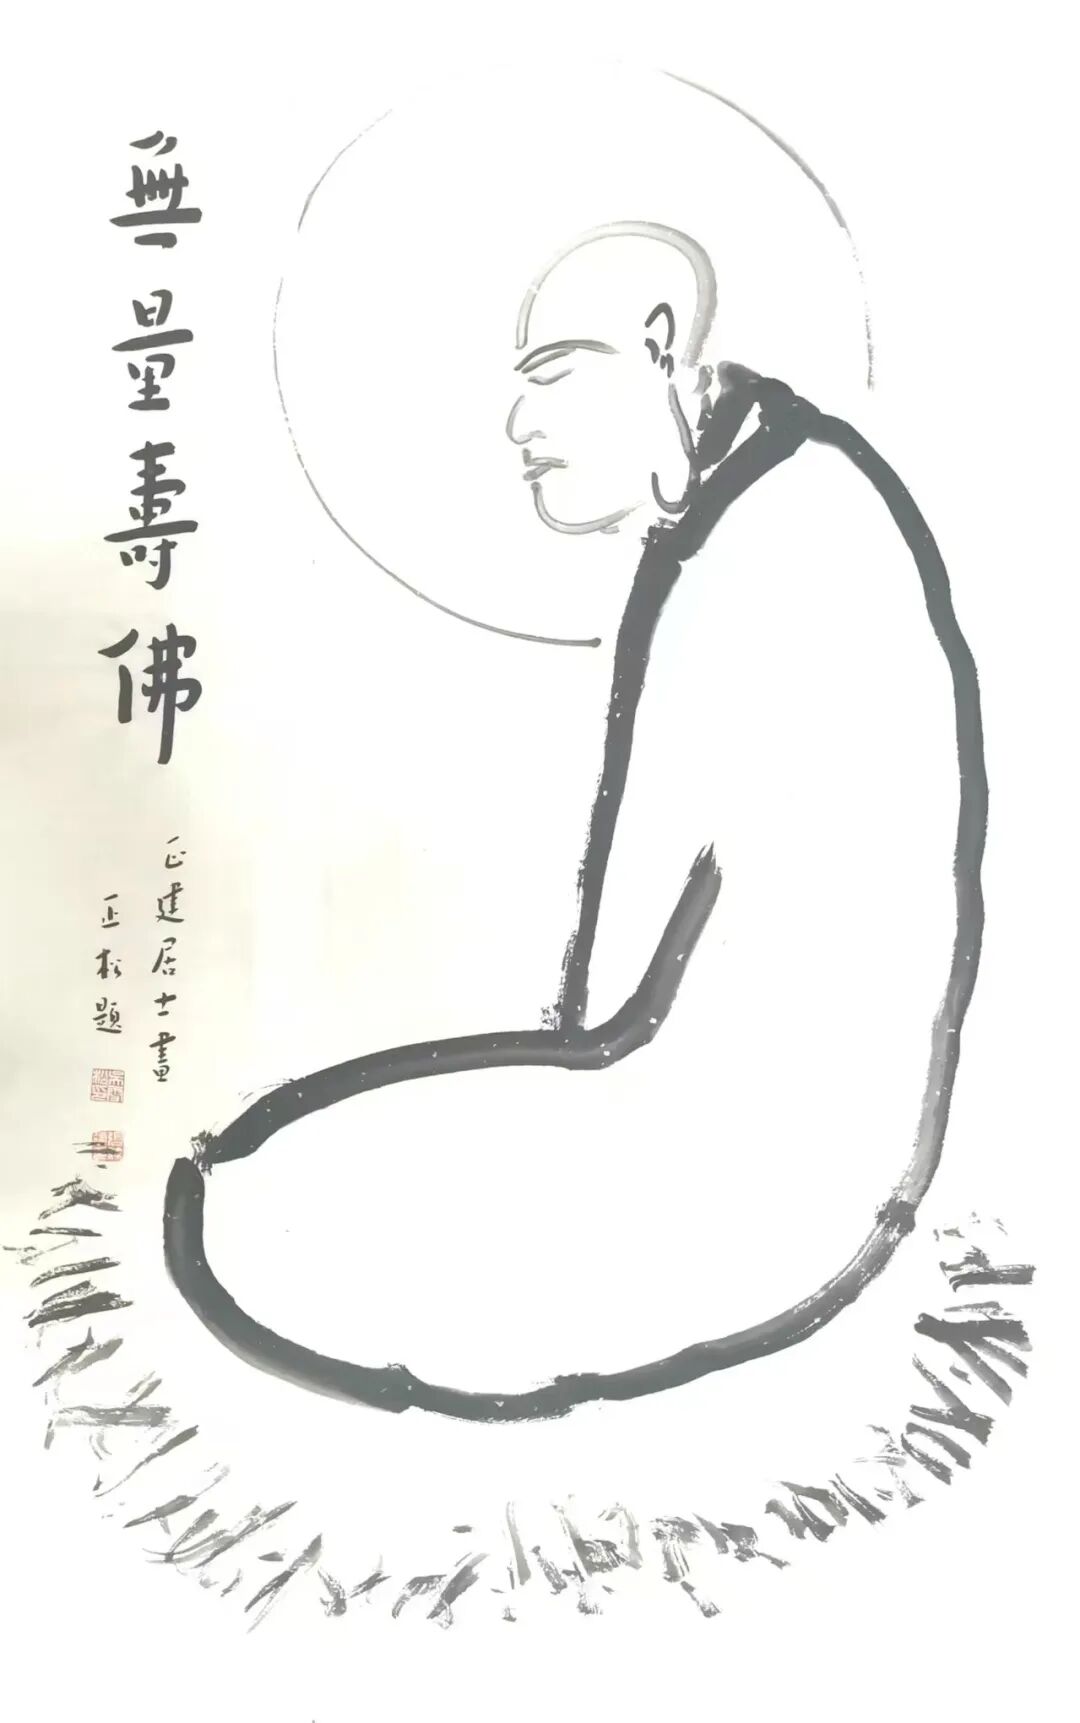 無量壽佛
正建居士畫
正松題